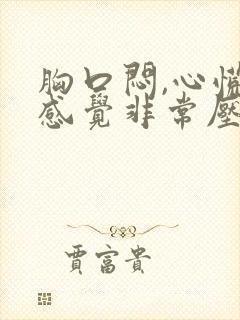 胸口悶,心慌
感覺非常壓
賈富貴